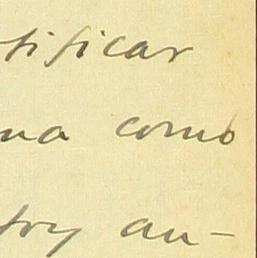 tificar
na como
try an-